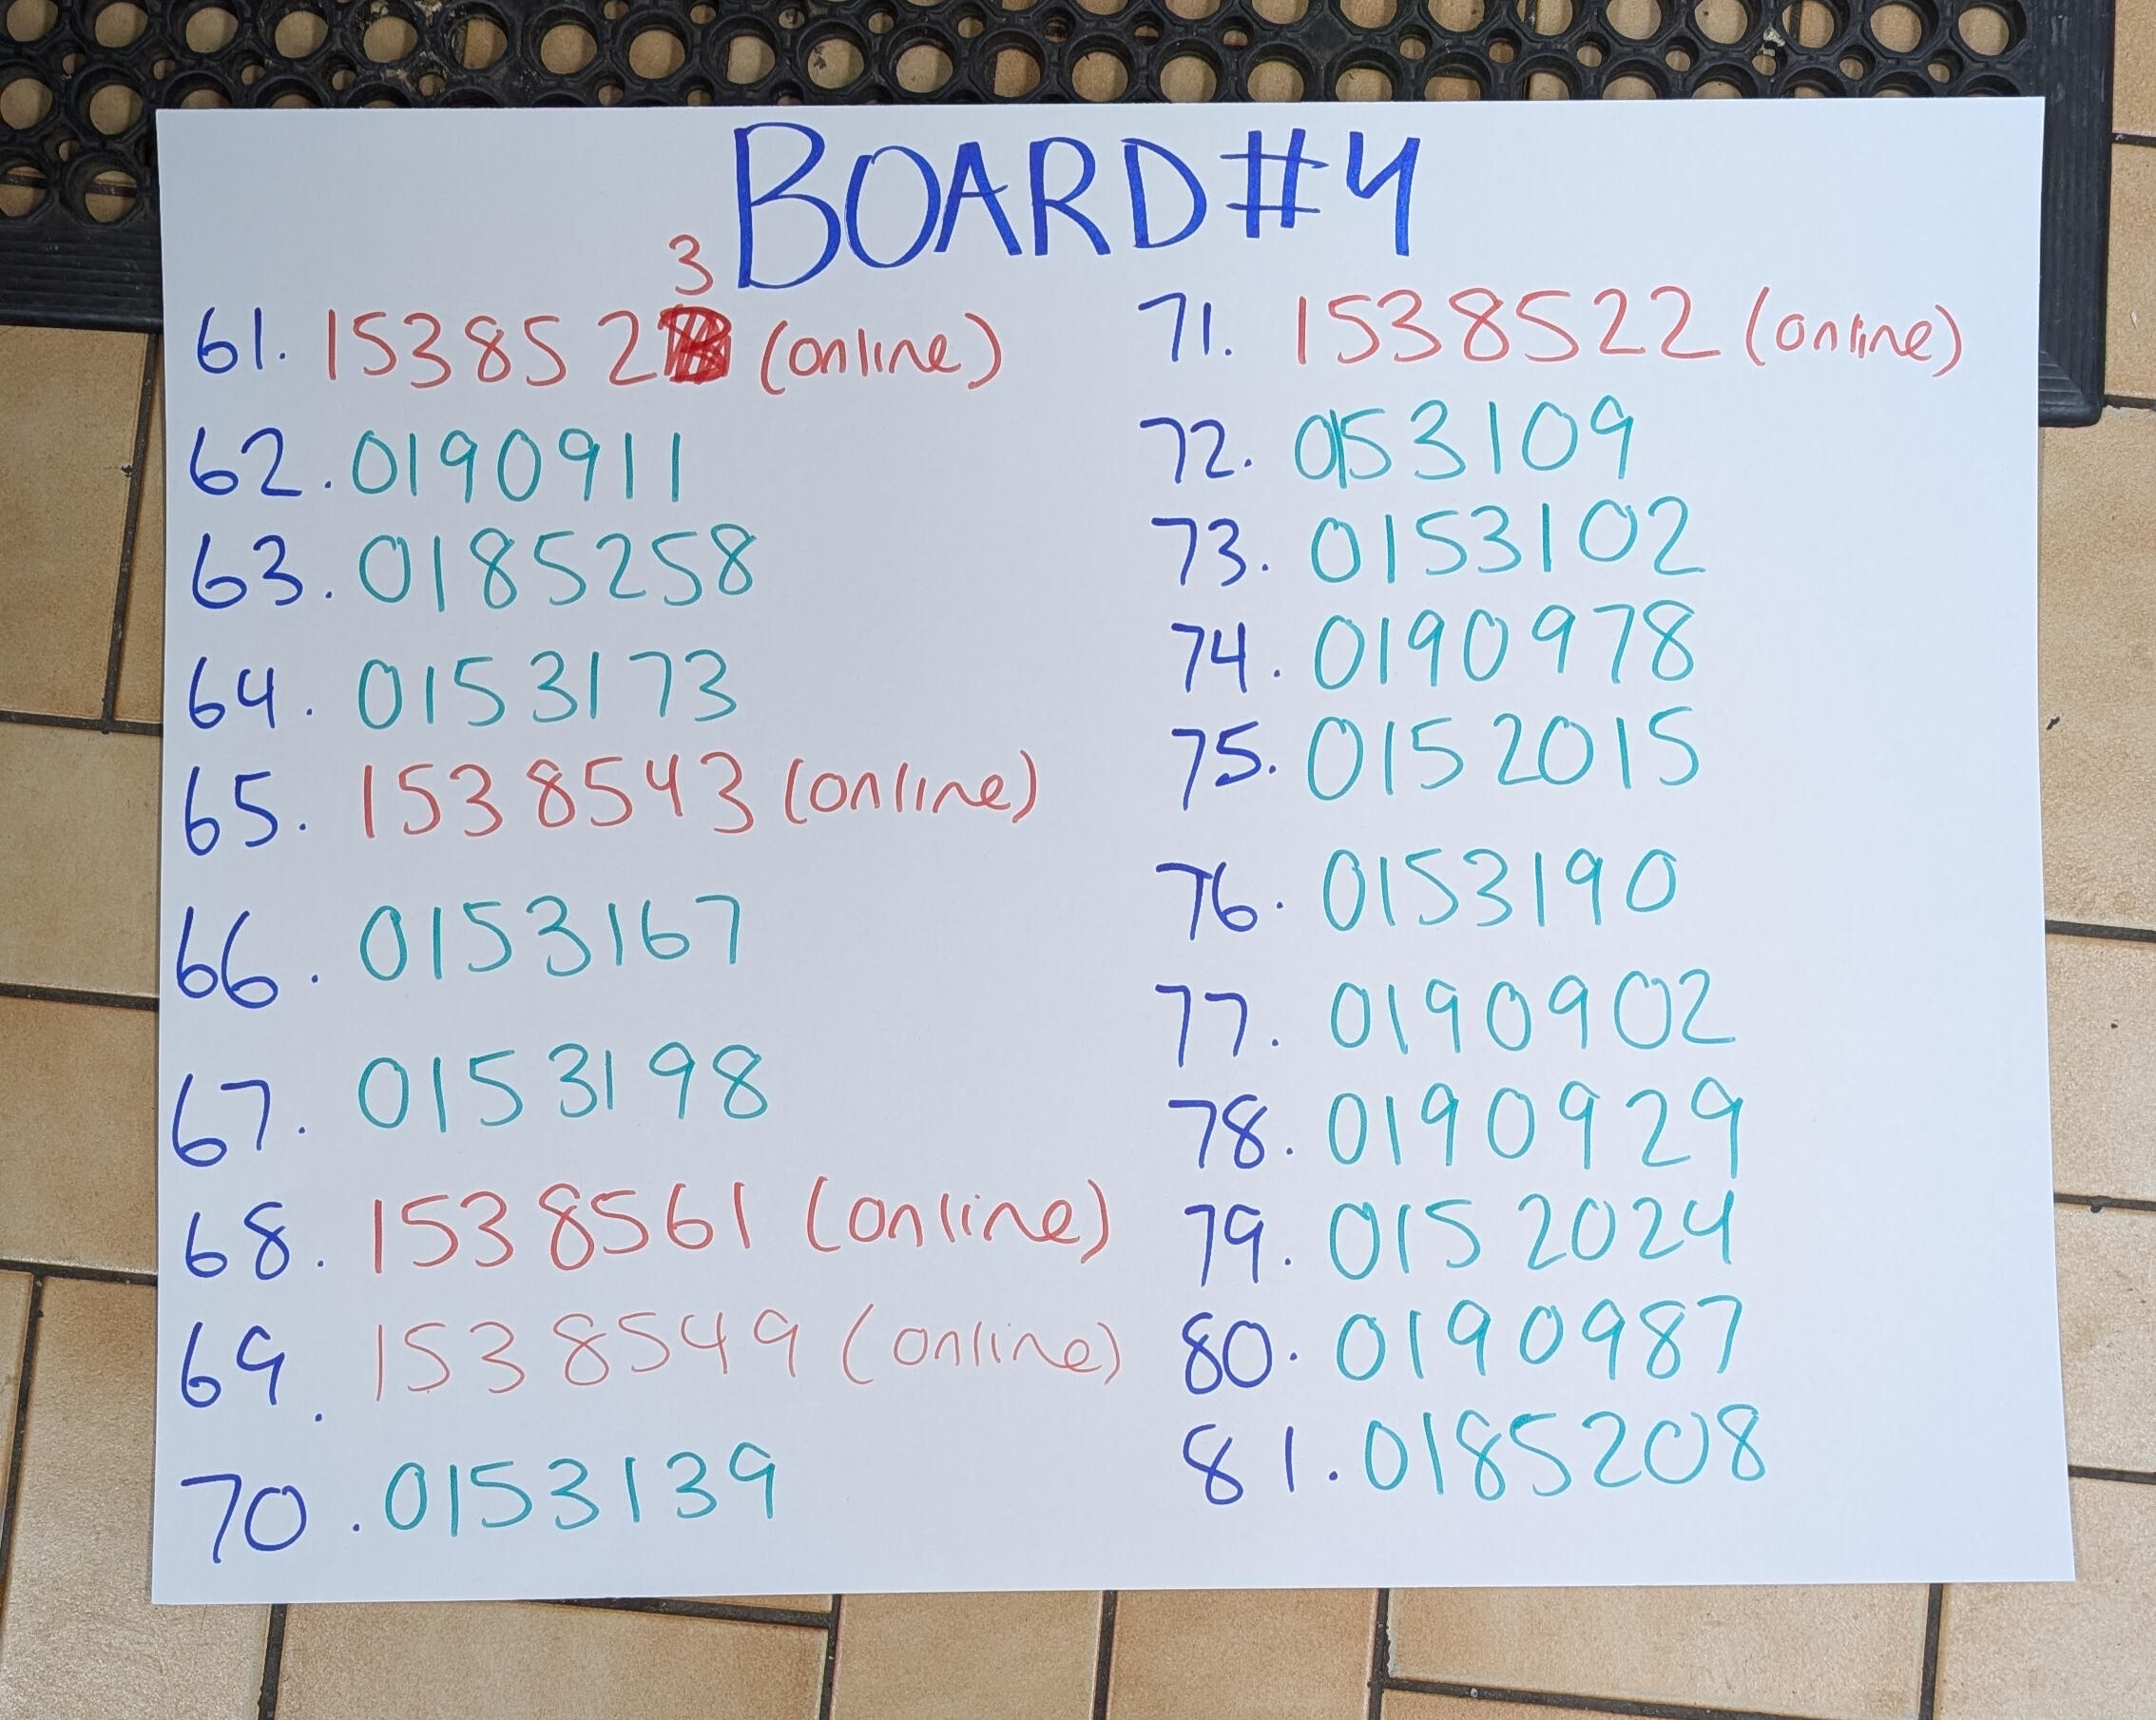 BOARD#4
61. 1538523 (online)
62. 0190911
63. 0185258
64. 0153173
65. 1538543 (online)
66. 0153167
67. 0153198
68. 1538561 (online)
69. 1538549 (online)
70. 0153139
71. 1538522 (online)
72. 0153109
73. 0153102
74. 0190978
75. 0152015
76. 0153190
77. 0190902
78. 0190929
79. 0152024
80. 0190987
81. 0185208